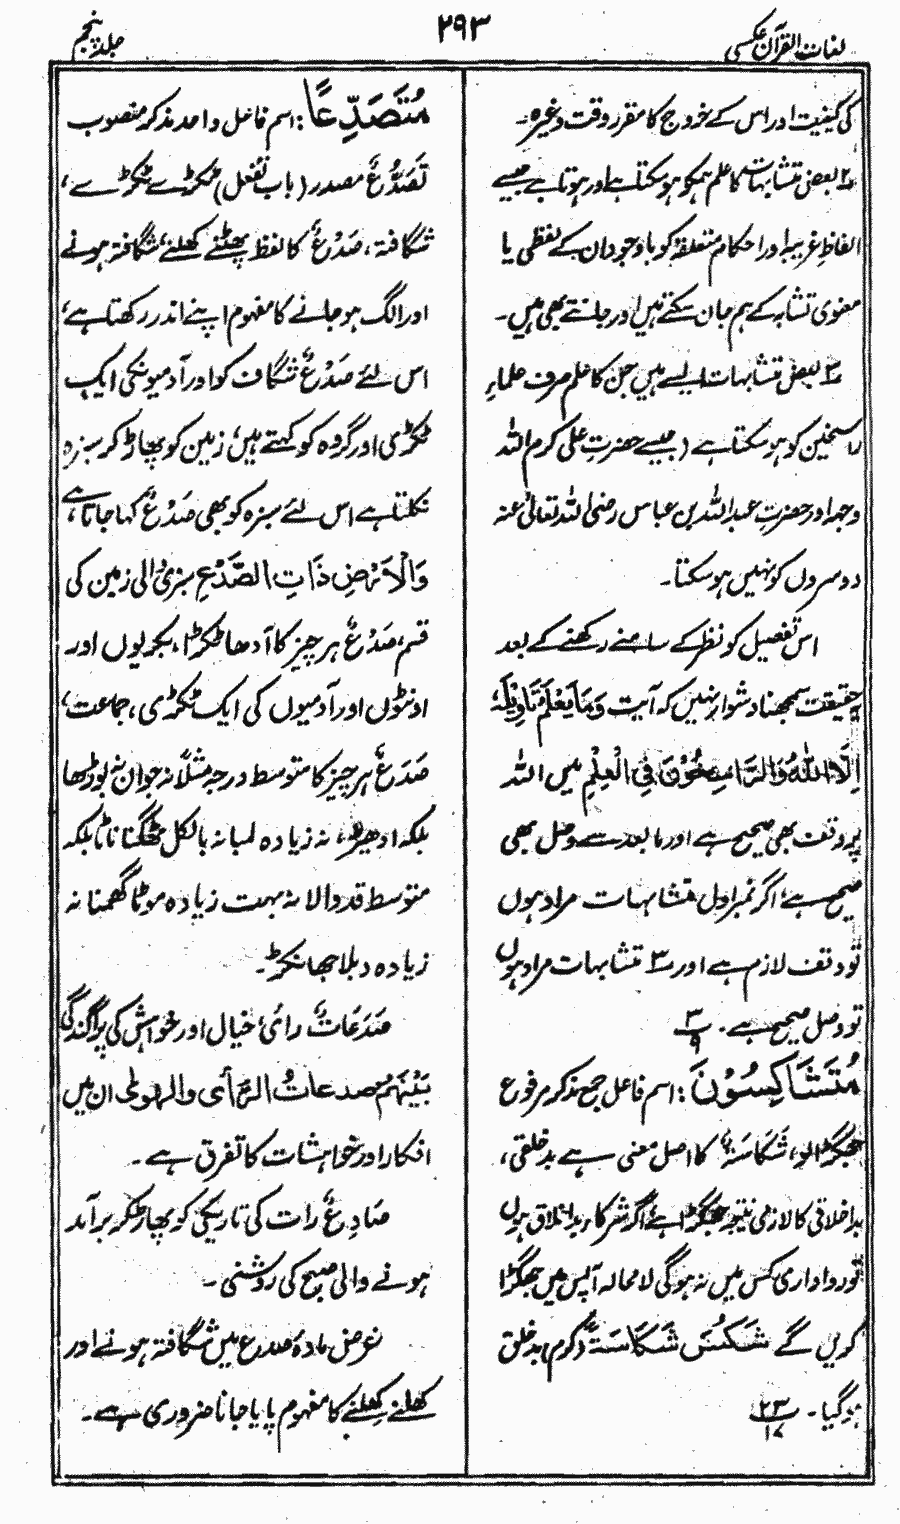 لغات القرآن عکسی
۲۹۳
جلد پنجم
کی کیفیت اور اس کے خروج کا مقرر وقت وغیرہ۔
۲ بعض متشابہات کا علم ہمکو ہو سکتا ہے اور ہوتا ہے جیسے
الفاظِ غریبہ اور احکام متعلقہ کو باوجود ان کے لفظی یا
معنوی تشابہ کے ہم جان سکتے ہیں اور جانتے بھی ہیں۔
۳ بعض متشابہات ایسے ہیں جن کا علم صرف علماءِ
راسخین کو ہو سکتا ہے (جیسے حضرتِ علی کرم اللہ
وجہہ اور حضرتِ عبداللہ بن عباس رضی اللہ تعالیٰ عنہ
دوسروں کو نہیں ہو سکتا۔
اس تفصیل کو نظر کے سامنے رکھنے کے بعد
حقیقت سمجھنا دشوار نہیں کہ آیت وَمَا يَعْلَمُ تَاوِيْلَهٗ
اِلَّا اللّٰهُ وَالرَّاسِخُوْنَ فِی الْعِلْمِ میں اللہ
پر وقف بھی صحیح ہے اور مابعد سے وصل بھی
صحیح ہے، اگر نمبر اول متشابہات مراد ہوں
تو وقف لازم ہے اور ۳ متشابہات مراد ہوں
تو وصل صحیح ہے۔ ۳/۹
مُتَشَاكِسُوْنَ: اسم فاعل جمع مذکر مرفوع
جھگڑالو، شَكَاسَةٌ کا اصل معنی ہے بدخلقی،
بداخلاقی کا لازمی نتیجہ جھگڑا ہے اگر شرکاء بداخلاق ہوں
تو رواداری کس میں نہ ہوگی لامحالہ آپس میں جھگڑا
کریں گے شَكُسَ شَكَاسَةً (کرم) بدخلق
ہوگیا۔ ۲۳/۱۷
مُتَصَدِّعًا: اسم فاعل واحد مذکر منصوب
تَصَدُّعٌ مصدر (باب تفعل) ٹکڑے ٹکڑے،
شگافتہ، صَدْعٌ کا لفظ پھٹنے کھلنے، شگافتہ ہونے
اور الگ ہو جانے کا مفہوم اپنے اندر رکھتا ہے،
اس لئے صَدْعٌ شگاف کو اور آدمیونکی ایک
ٹکڑی اور گروہ کو کہتے ہیں، زمین کو پھاڑ کر سبزہ
نکلتا ہے اس لئے سبزہ کو بھی صَدْعٌ کہا جاتا ہے،
وَالْاَرْضِ ذَاتِ الصَّدْعِ سبزی والی زمین کی
قسم، صَدْعٌ ہر چیز کا آدھا ٹکڑا، بکریوں اور
اونٹوں اور آدمیوں کی ایک ٹکڑی، جماعت،
صَدَعٌ ہر چیز کا متوسط درجہ مثلاً نہ جوان نہ بوڑھا
بلکہ ادھیڑ، نہ زیادہ لمبا نہ بالکل ٹھگنا ناٹا بلکہ
متوسط قد والا نہ بہت زیادہ موٹا گھمنا نہ
زیادہ دبلا جھانکڑ۔
صَدَعَاتٌ رائ، خیال اور خواہش کی پراگندگی
بَيْنَهُمْ صدعاتٌ الرَّأی والھوٰی ان میں
افکار اور خواہشات کا تفرق ہے۔
صَادِعٌ رات کی تاریکی کو پھاڑ کر برآمد
ہونے والی صبح کی روشنی۔
غرض مادہ صدع میں شگافتہ ہونے اور
کھلنے کھِلنے کا مفہوم پایا جانا ضروری ہے۔